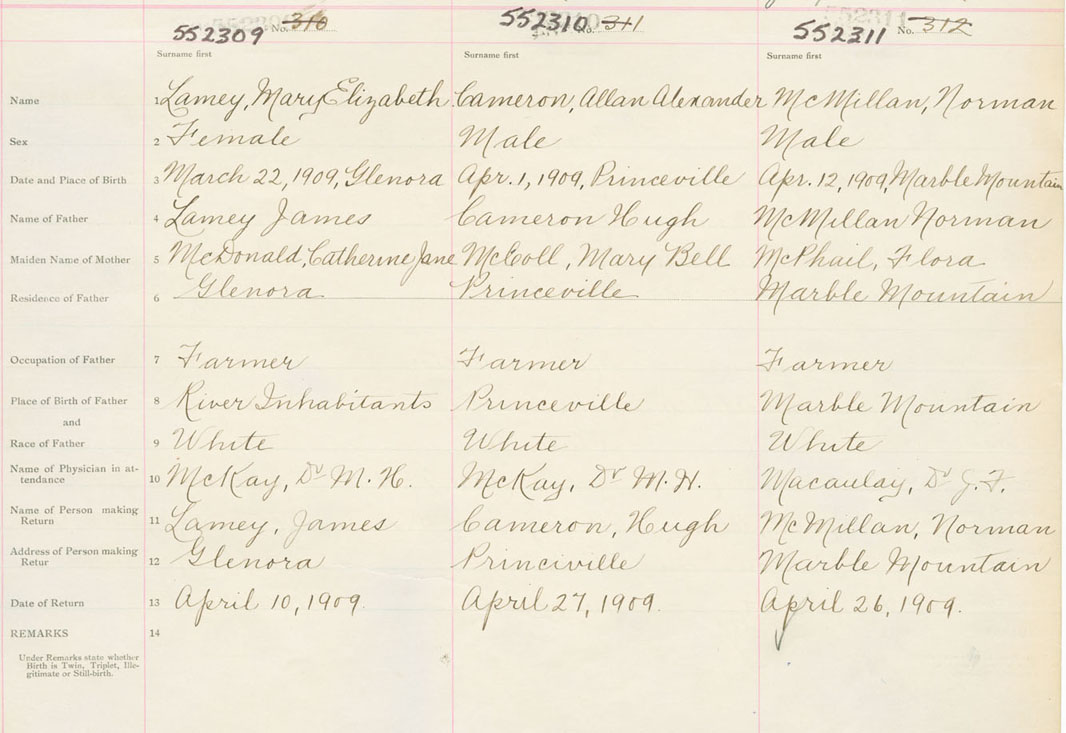 552309 No. 310 552310 No. 311 552311 No. 312
Surname first Surname first Surname first
Name 1 Lamey, Mary Elizabeth Cameron, Allan Alexander McMillan, Norman
Sex 2 Female Male Male
Date and Place of Birth 3 March 22, 1909, Glenora Apr. 1, 1909, Princeville Apr. 12, 1909, Marble Mountain
Name of Father 4 Lamey James Cameron Hugh McMillan Norman
Maiden Name of Mother 5 McDonald, Catherine Jane McColl, Mary Bell McPhail, Flora
Residence of Father 6 Glenora Princeville Marble Mountain
Occupation of Father 7 Farmer Farmer Farmer
Place of Birth of Father 8 River Inhabitants Princeville Marble Mountain
and
Race of Father 9 White White White
Name of Physician in at-
tendance 10 McKay, Dr M. H. McKay, Dr M. H. Macaulay, Dr J. F.
Name of Person making
Return 11 Lamey, James Cameron, Hugh McMillan, Norman
Address of Person making
Retur 12 Glenora Princiville Marble Mountain
Date of Return 13 April 10, 1909. April 27, 1909. April 26, 1909.
REMARKS 14
Under Remarks state whether
Birth is Twin, Triplet, Ille-
gitimate or Still-birth.